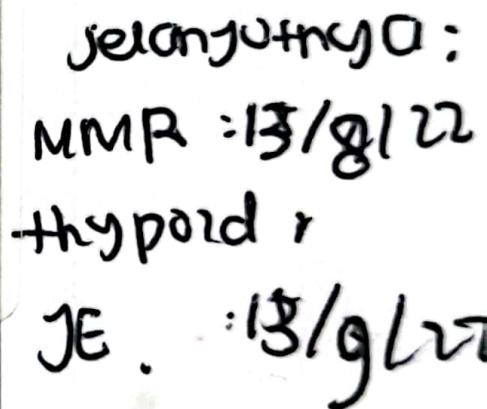 selanjutnya:
MMR : 15/8/22
thypoid,
JE. : 15/9/22